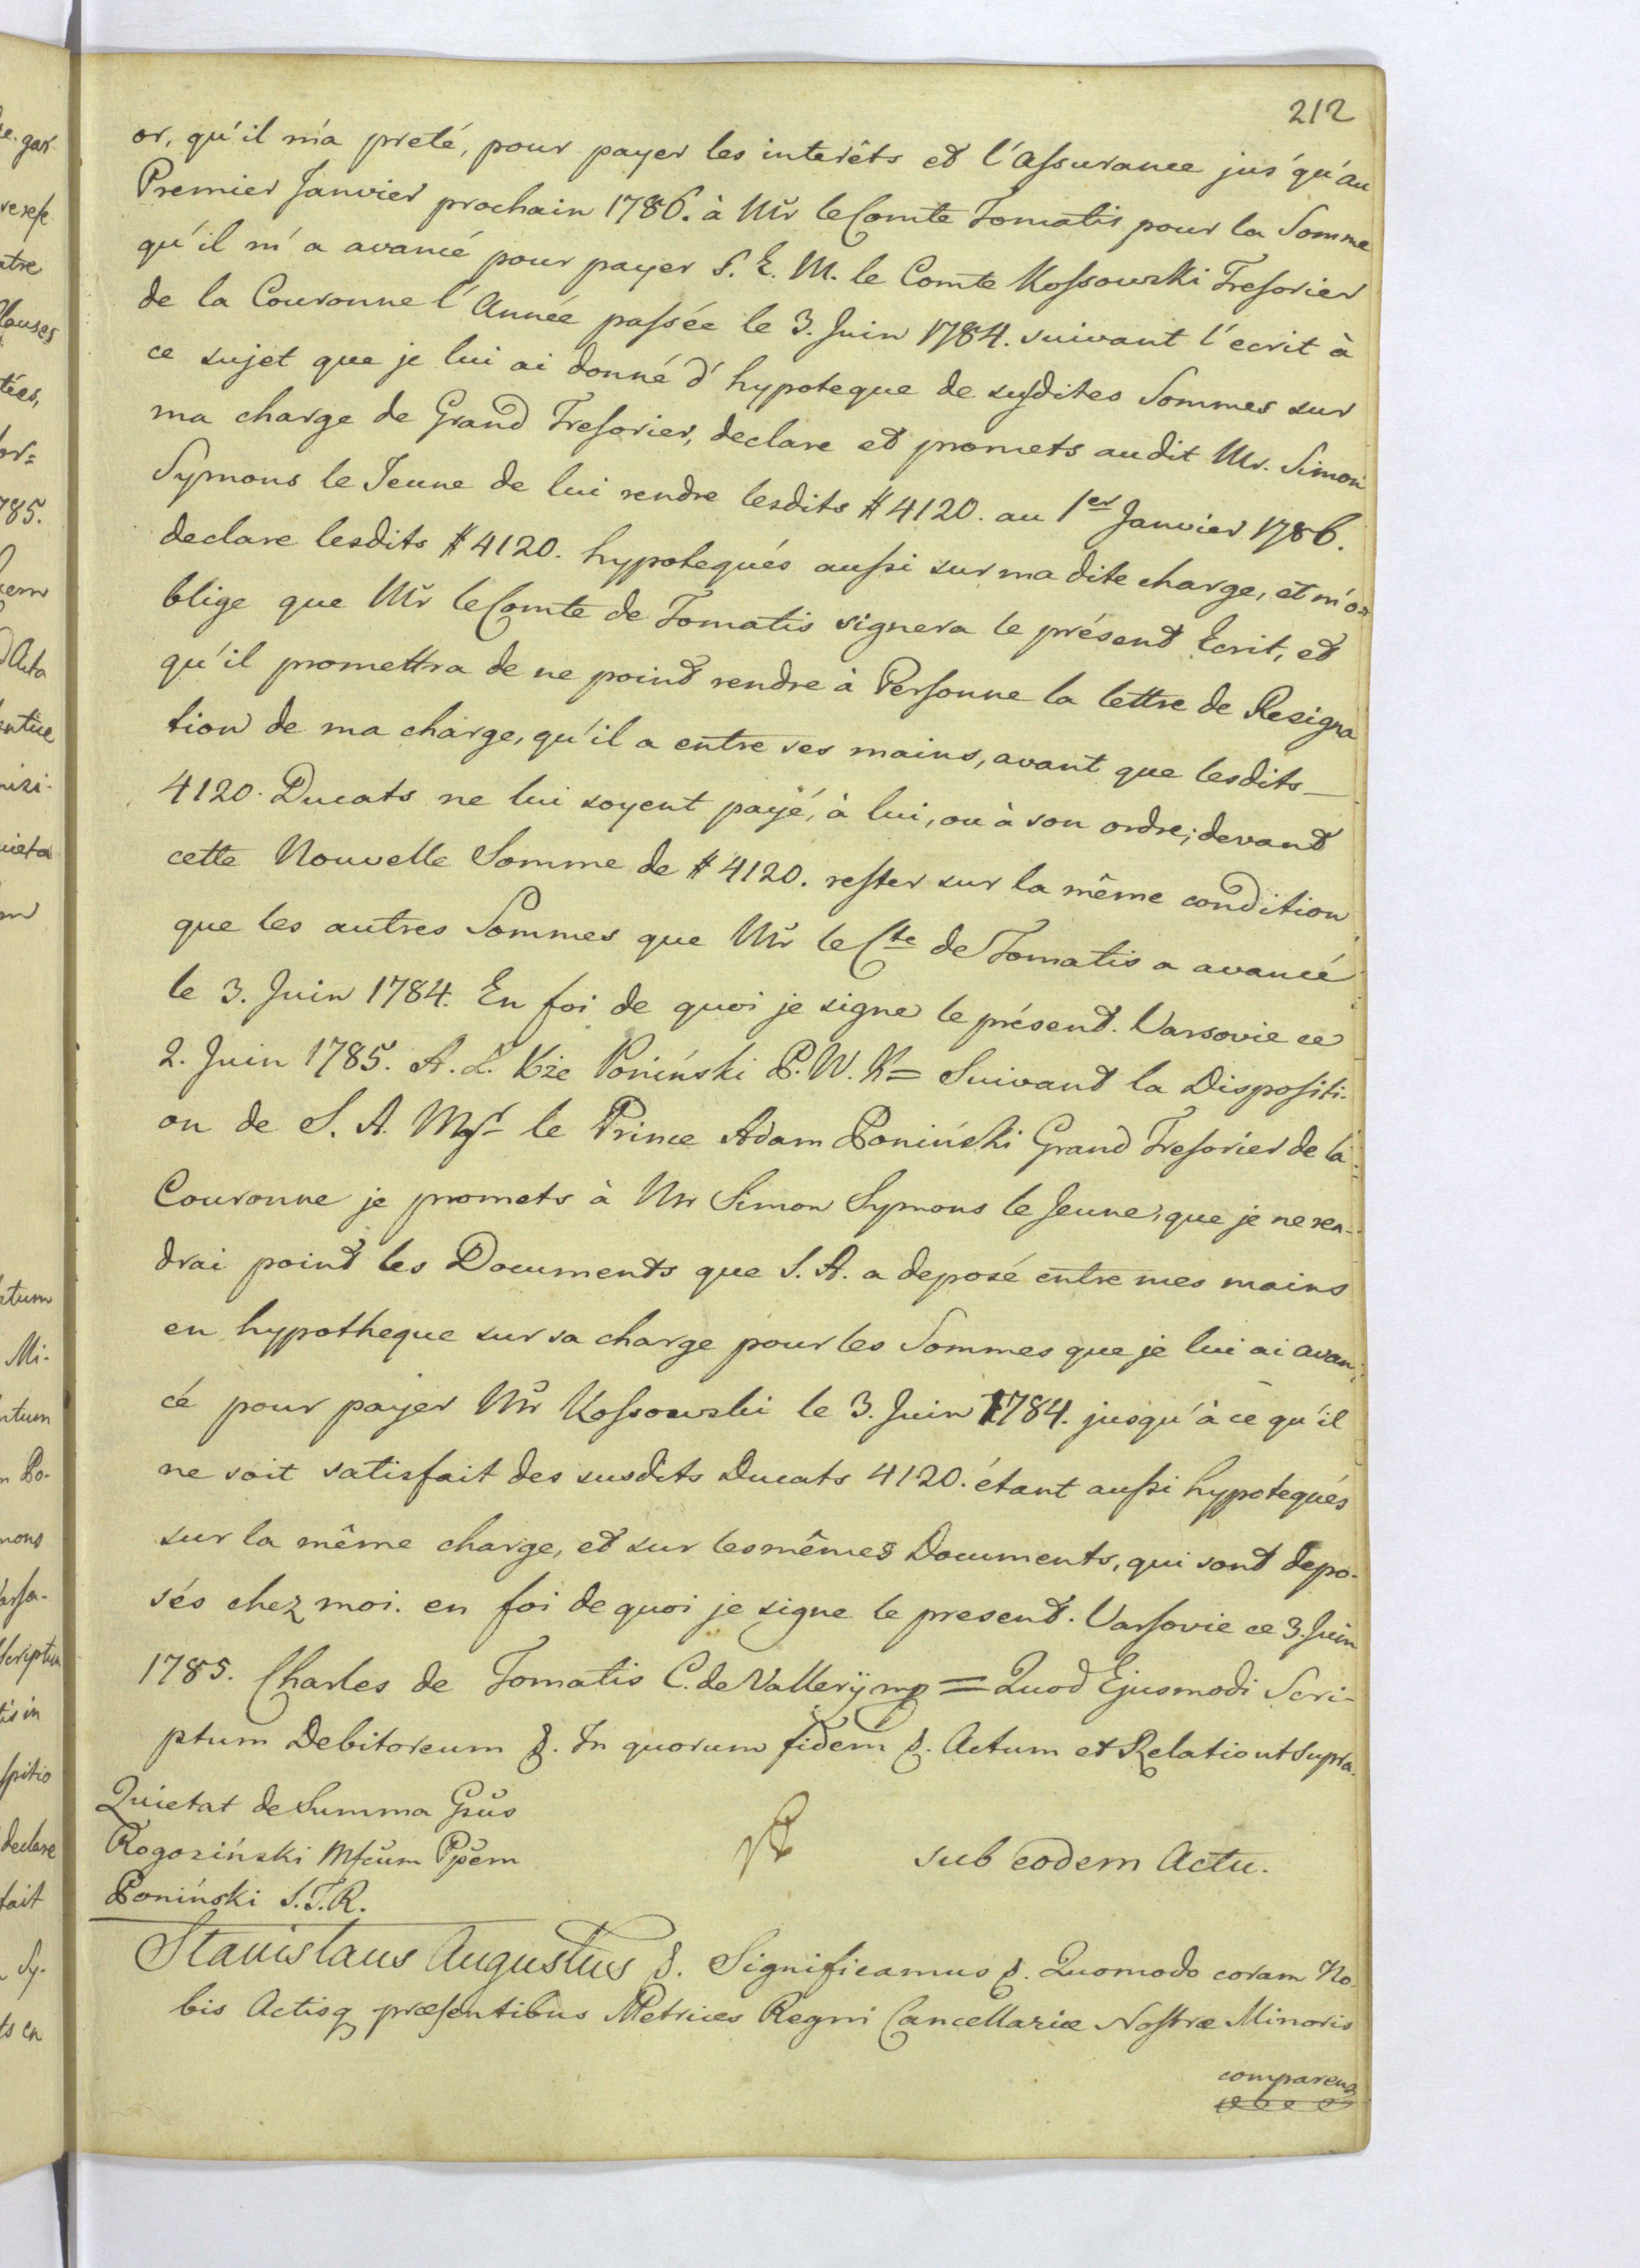 212
or, qu'il m'a preté, pour payer les interêts et l'Assurance jus'qu'au
Premier Janvier prochain 1786. à Mr le Comte Tomatis pour la Somme
qu'il m'a avancé pour payer S. E. M. le Comte Kossowski Tresorier
de la Couronne l'Année passée le 3. Juin 1784. suivant l'ecrit à
ce sujet que je lui ai donné d'hypoteque de susdites Sommes sur
ma charge de Grand Tresorier, declare et promets audit Mr. Simon
Symons le Jeune de lui rendre lesdits # 4120. au 1er Janvier 1786.
declare lesdits # 4120. hypotequés aussi sur ma dite charge, et m'o=
blige que Mr le Comte de Tomatis signera le présent Ecrit, et
qu'il promettra de ne point rendre à Personne la lettre de Resigna
tion de ma charge, qu'il a entre ses mains, avant que lesdits
4120. Ducats ne lui soyent payé, à lui, ou à son ordre; devant
cette Nouvelle Somme de # 4120. rester sur la même condition
que les autres Sommes que Mr le Cte de Tomatis a avancé
le 3. Juin 1784. En foi de quoi je signe le présent. Varsovie ce
2. Juin 1785. A. L. Xże Poniński P. W. K = Suivant la Dispositi-
on de S. A. Mgr le Prince Adam Poniński Grand Tresorier de la
Couronne je promets à Mr Simon Symons le Jeune, que je ne ren-
drai point les Documents que S. A. a deposé entre mes mains
en hypotheque sur sa charge pour les Sommes que je lui ai avan
cé pour payer Mr Kossowski le 3. Juin 1784. jusqu'à ce qu'il
ne soit satisfait des susdits Ducats 4120. étant aussi hypotequés
sur la même charge, et sur les mêmes Documents, qui sont depo-
sés chez moi. en foi de quoi je signe le present. Varsovie ce 3. Juin
1785. Charles de Tomatis C. de Vallery mp = Quod Ejusmodi Scri-
ptum Debitoreum &. In quorum fidem &. Actum et Relatio ut Supra.
Quietat de Summa Gsus
Rogoziński Mfcum Ppem
Poniński S. T. R.
sub eodem Actu.
Stanislaus Augustus &. Significamus &. Quomodo coram No
bis Actisq praesentibus Metrices Regni Cancellariae Nostrae Minoris
comparens